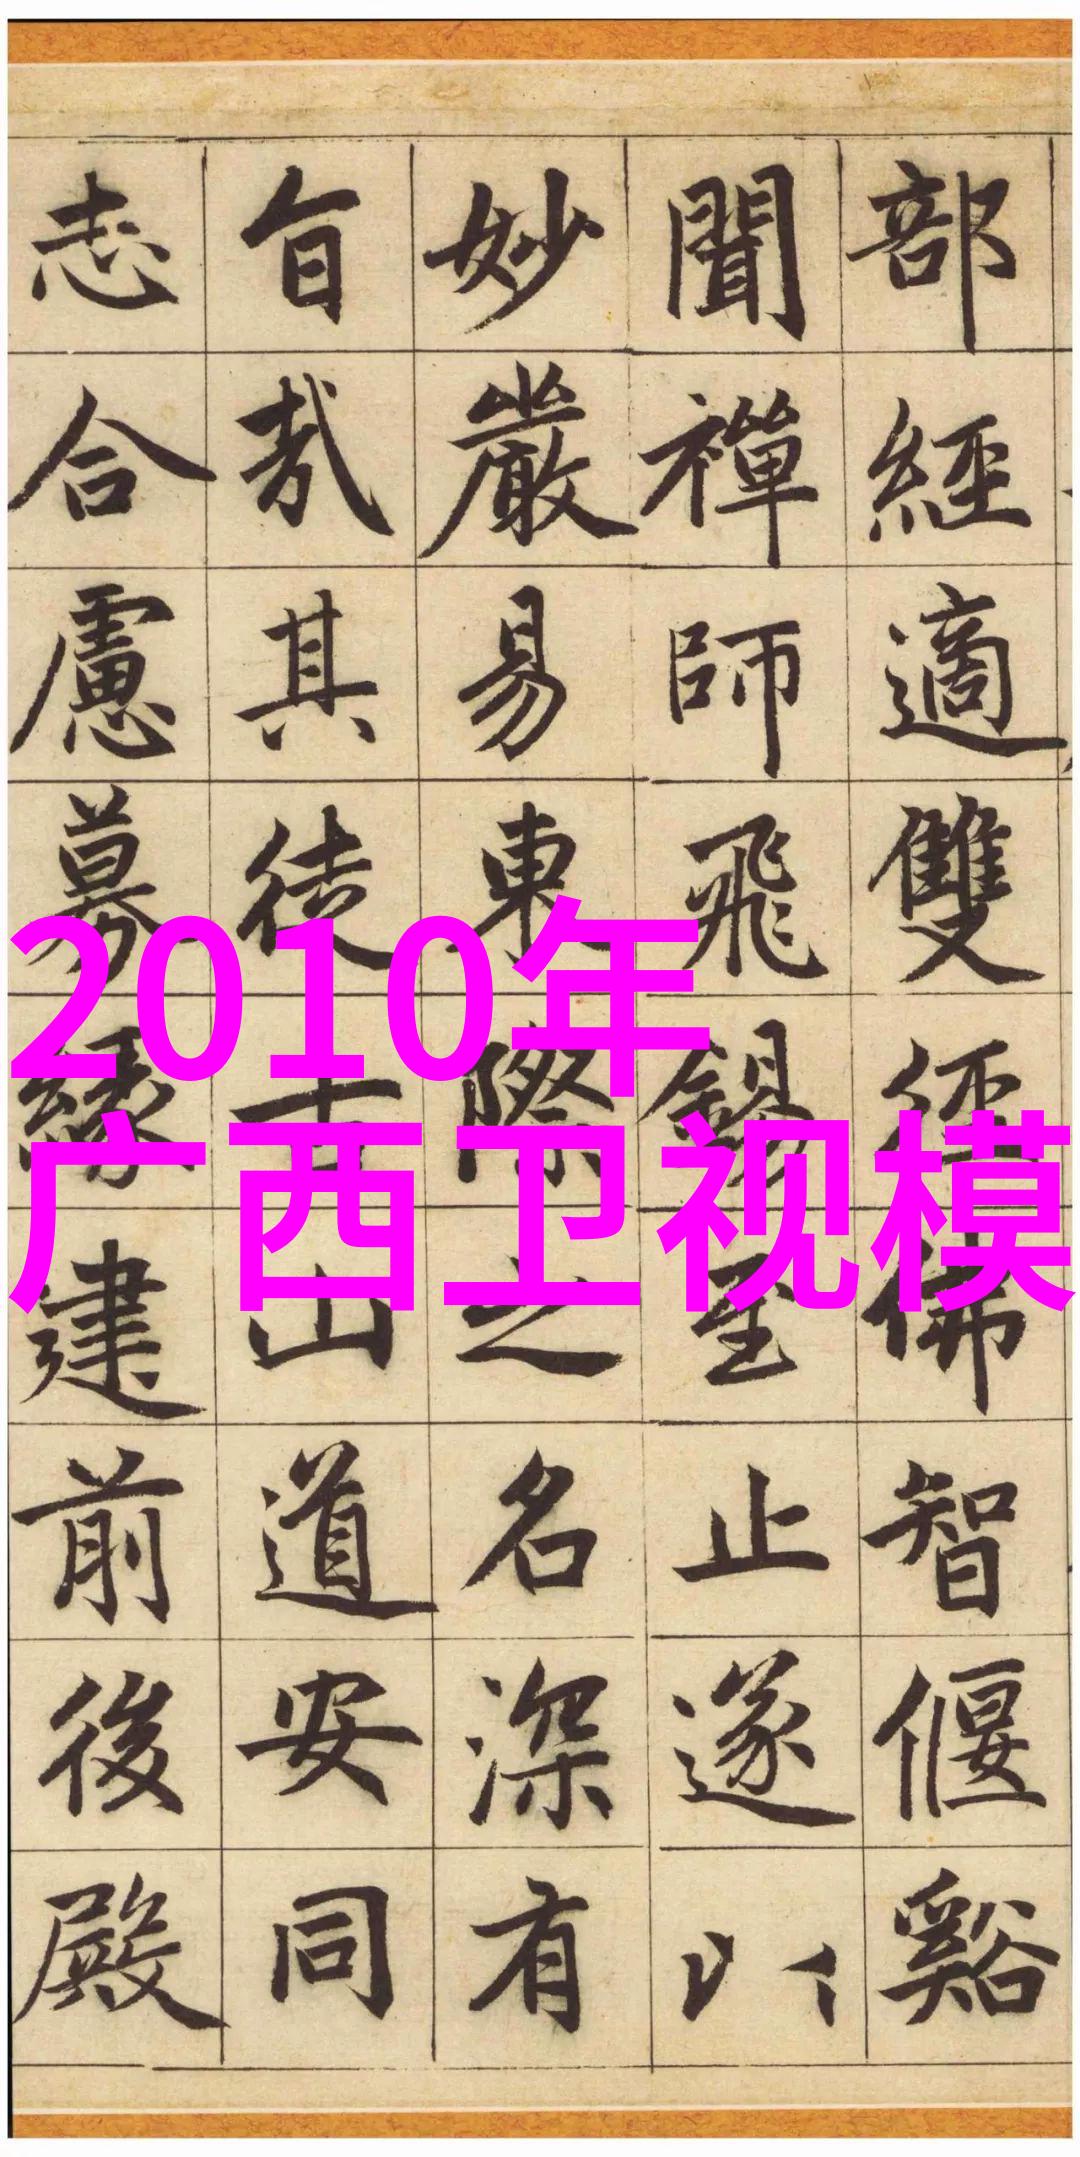 2010年
广西卫视模
部經適雙徑佛智偃谿
聞禪師飛錫至止遂以
妙嚴易東際之名深有
旨哉其徒古山道安同
志合慮募緣建前後殿